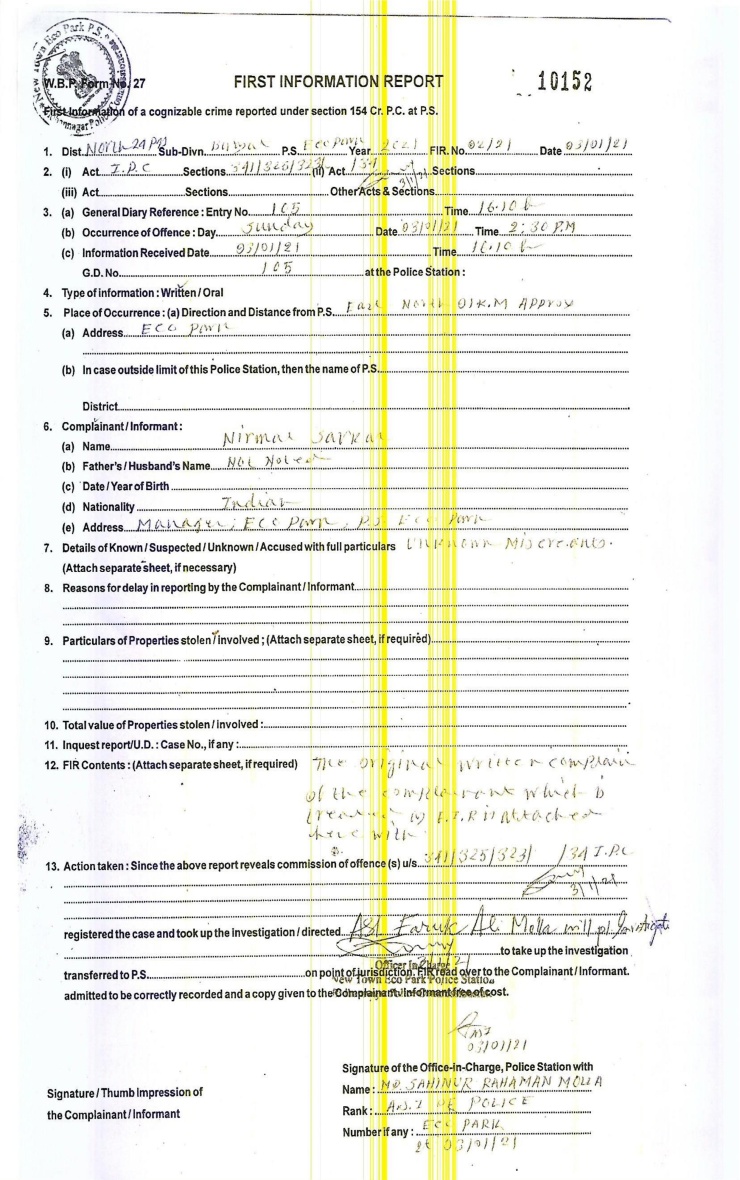 NEW TOWN Eco Park P.S.
W.B.P. Form No. 27
FIRST INFORMATION REPORT
10152
First Information of a cognizable crime reported under section 154 Cr. P.C. at P.S.
1. Dist. North 24 Pgs Sub-Divn. P.S. Eco Park Year 2021 FIR. No. 02/21 Date 03/01/21
2. (i) Act I.P.C Sections 341/325/323 (ii) Act /34 Sections
3/1/21
(iii) Act Sections Other Acts & Sections
3. (a) General Diary Reference : Entry No. 105 Time 16.10 h
(b) Occurrence of Offence : Day Sunday Date 03/01/21 Time 2:30 P.M
(c) Information Received Date 03/01/21 Time 16.10 h
G.D. No. 105 at the Police Station :
4. Type of information : Written / Oral
5. Place of Occurrence : (a) Direction and Distance from P.S. East North 01 K.M Approx
(a) Address Eco Park
(b) In case outside limit of this Police Station, then the name of P.S.
District
6. Complainant / Informant :
(a) Name Nirmal Sarkar
(b) Father's / Husband's Name Not Noted
(c) Date / Year of Birth
(d) Nationality Indian
(e) Address Manager, Eco Park, P.S Eco Park
7. Details of Known / Suspected / Unknown / Accused with full particulars Unknown Miscreants.
(Attach separate sheet, if necessary)
8. Reasons for delay in reporting by the Complainant / Informant
9. Particulars of Properties stolen / involved ; (Attach separate sheet, if required)
10. Total value of Properties stolen / involved :
11. Inquest report/U.D. : Case No., if any :
12. FIR Contents : (Attach separate sheet, if required) The original written complain
of the complainant which is
treated as F.I.R is attached
here with
13. Action taken : Since the above report reveals commission of offence (s) u/s. 341/325/323/ /34 I.P.C
3/1/21
registered the case and took up the investigation / directed ASI Faruk Ali Molla will pl. Investigate
to take up the investigation
Officer in Charge
transferred to P.S. on point of jurisdiction. FIR read over to the Complainant / Informant.
New Town Eco Park Police Station
admitted to be correctly recorded and a copy given to the Complainant / Informant free of cost.
03/01/21
Signature of the Office-in-Charge, Police Station with
Name : MD. SAHINUR RAHAMAN MOLLA
Signature / Thumb Impression of
the Complainant / Informant
Rank : A.S.I OF POLICE
Number if any : ECO PARK
03/01/21